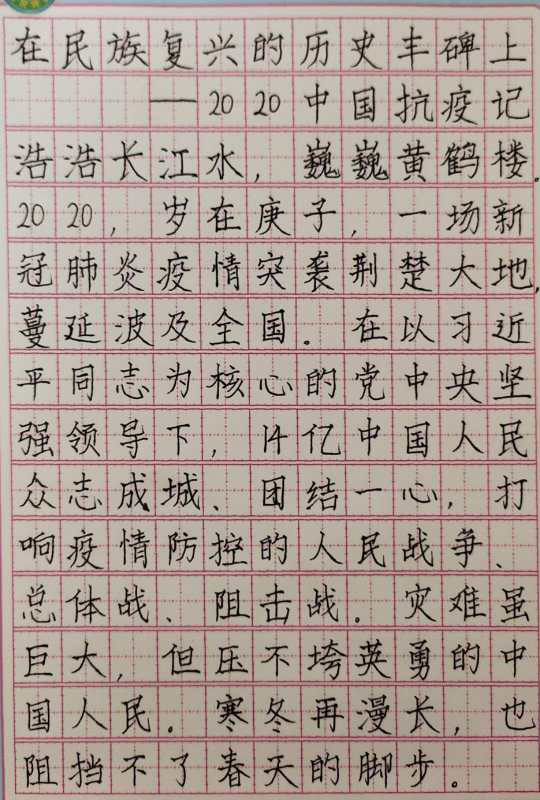 在民族复兴的历史丰碑上
——2020中国抗疫记
浩浩长江水，巍巍黄鹤楼.
2020，岁在庚子，一场新
冠肺炎疫情突袭荆楚大地，
蔓延波及全国.在以习近
平同志为核心的党中央坚
强领导下，14亿中国人民
众志成城、团结一心，打
响疫情防控的人民战争、
总体战、阻击战.灾难虽
巨大，但压不垮英勇的中
国人民.寒冬再漫长，也
阻挡不了春天的脚步。